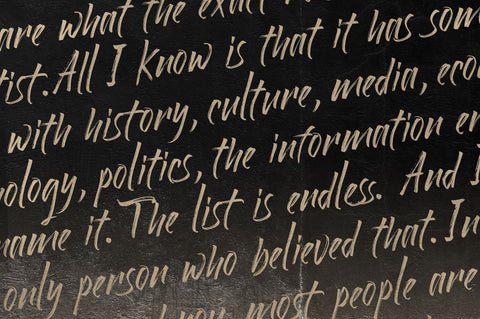 are what the exact
tist. All I know is that it has som
with history, culture, media, eco
ology, politics, the information er
name it. The list is endless. And I
only person who believed that. In
you most people are